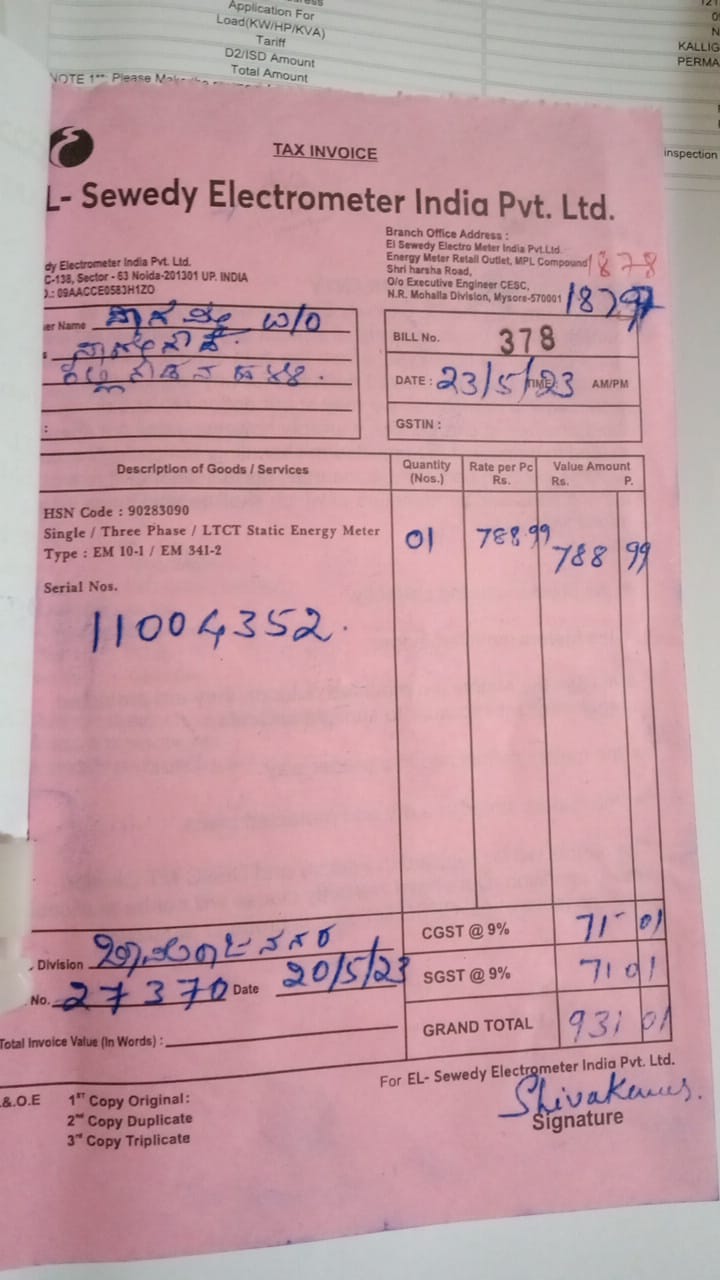 Application For
Load(KW/HP/KVA)
Tariff
D2/ISD Amount
Total Amount
KALLIG
PERMA
inspection
TAX INVOICE
L- Sewedy Electrometer India Pvt. Ltd.
dy Electrometer India Pvt. Ltd.
C-138, Sector - 63 Noida-201301 UP. INDIA
.: 09AACCE0583H1ZO
Branch Office Address :
El Sewedy Electro Meter India Pvt.Ltd.
Energy Meter Retail Outlet, MPL Compound
1878
Shri harsha Road,
O/o Executive Engineer CESC,
N.R. Mohalla Division, Mysore-570001
1879
er Name
BILL No. 378
DATE : 23/5/23 TIME: AM/PM
GSTIN :
Description of Goods / Services
Quantity (Nos.)
Rate per Pc Rs.
Value Amount Rs. P.
HSN Code : 90283090
Single / Three Phase / LTCT Static Energy Meter
Type : EM 10-1 / EM 341-2
01 788.99 788 99
Serial Nos.
11004352.
Division
No. 27370 Date 20/5/23
CGST @ 9% 71 01
SGST @ 9% 71 01
GRAND TOTAL 931 01
Total Invoice Value (In Words) :
For EL- Sewedy Electrometer India Pvt. Ltd.
Signature
.&.O.E 1ST Copy Original:
2nd Copy Duplicate
3rd Copy Triplicate